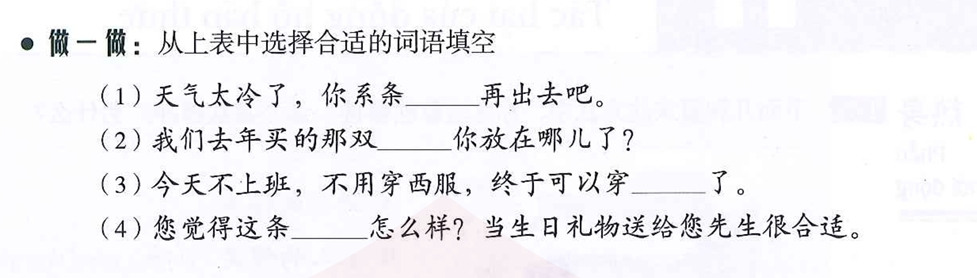 ● 做一做：从上表中选择合适的词语填空
（1）天气太冷了，你系条______再出去吧。
（2）我们去年买的那双______你放在哪儿了？
（3）今天不上班，不用穿西服，终于可以穿______了。
（4）您觉得这条______怎么样？当生日礼物送给您先生很合适。